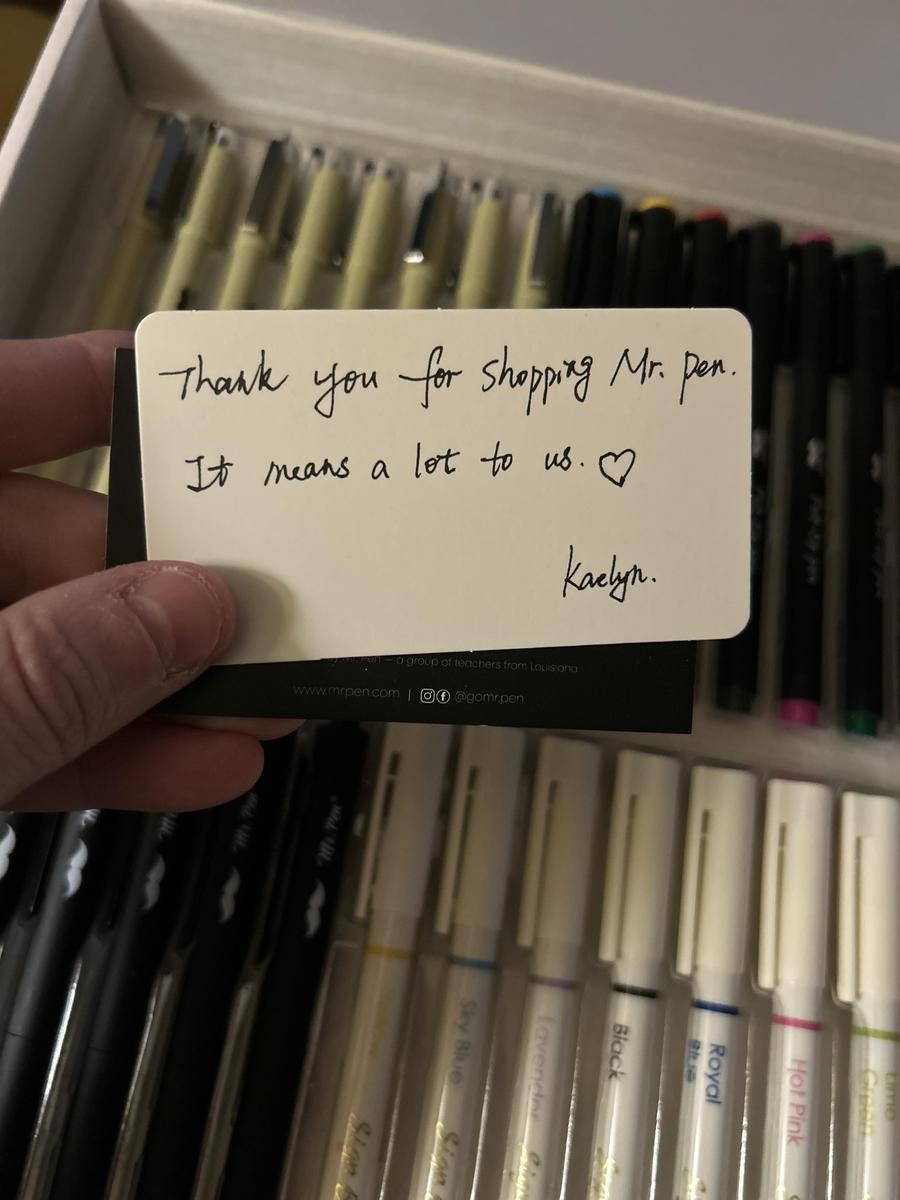 Thank you for shopping Mr. pen.
It means a lot to us. ♡
Kaelyn.
Mr. Pen — a group of teachers from Louisiana
www.mrpen.com | @gomr.pen
Mr. Pen
Mr. Pen
Sky Blue
Lavender
Black
Royal
Blue
Hot Pink
Lime
Green